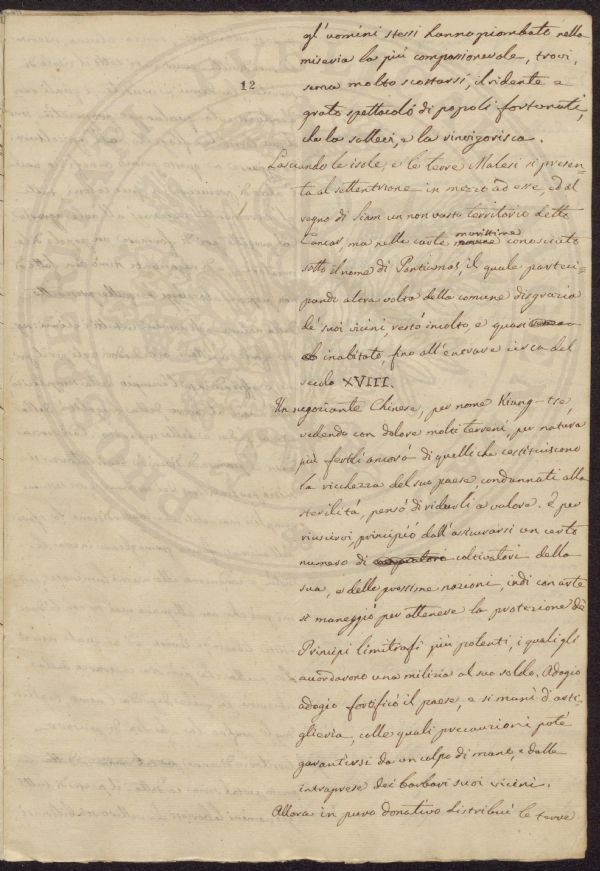 12
gl'uomini stessi hanno piombato nella
miseria la più compassionevole, trovi,
senza molto scostarsi, il ridente e
grato spettacolo di popoli fortunati,
che la sollevi, e la rinvigorisca.
Lasciando le isole, e le terre Malesi si presen-
ta al settentrione in mezzo ad esse, ed al
regno di Siam un non vasto territorio detto
Cancar, ma nelle carte conosciuto
sotto il nome di Ponticmas, il quale parteci-
pando altra volta della comune disgrazia
de' suoi vicini, restò incolto, e quasi
inabitato, fino all'entrare circa del
secolo XVIII.
Un negoziante Chinese, per nome Kiang-tse,
vedendo con dolore molti terreni, per natura
più fertili ancora di quelli che costituiscono
la ricchezza del suo paese condannati alla
sterilità, pensò di ridurli a valore. E per
riuscirvi, principiò dall'assicurarsi un certo
numero di coltivatori della
sua, e delle prossime nazioni, indi con arte
si maneggiò per ottenere la protezione de'
Principi limitrofi più potenti, i quali gli
accordarono una milizia al suo soldo. Adagio
adagio fortificò il paese, e si munì d'arti-
glieria, colle quali precauzioni potè
garantirsi da un colpo di mano, e dalle
intraprese dei barbari suoi vicini.
Allora in puro donativo distribuì le terre